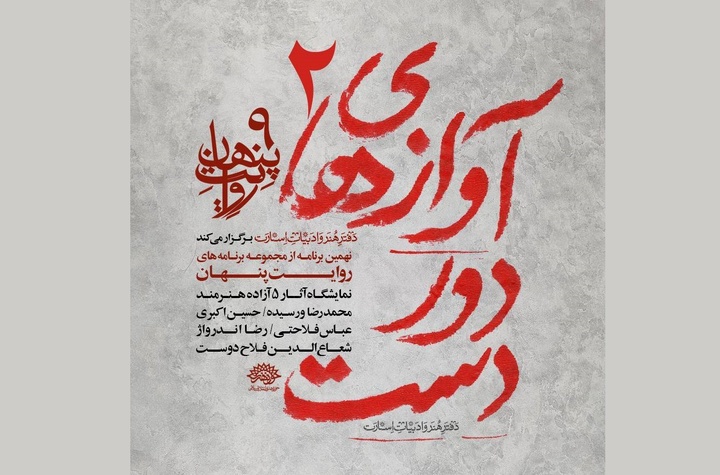 آوازهای
۲
دور
دست
روایت پنهان
۹
دفتر هنر و ادبیات اسارت برگزار می‌کند
نهمین برنامه از مجموعه برنامه‌های
روایت پنهان
نمایشگاه آثار ۵ آزاده هنرمند
محمدرضا ورسیده / حسین اکبری
عباس فلاحتی / رضا اندرواژ
شعاع‌الدین فلاح‌دوست
دفتر هنر و ادبیات اسارت